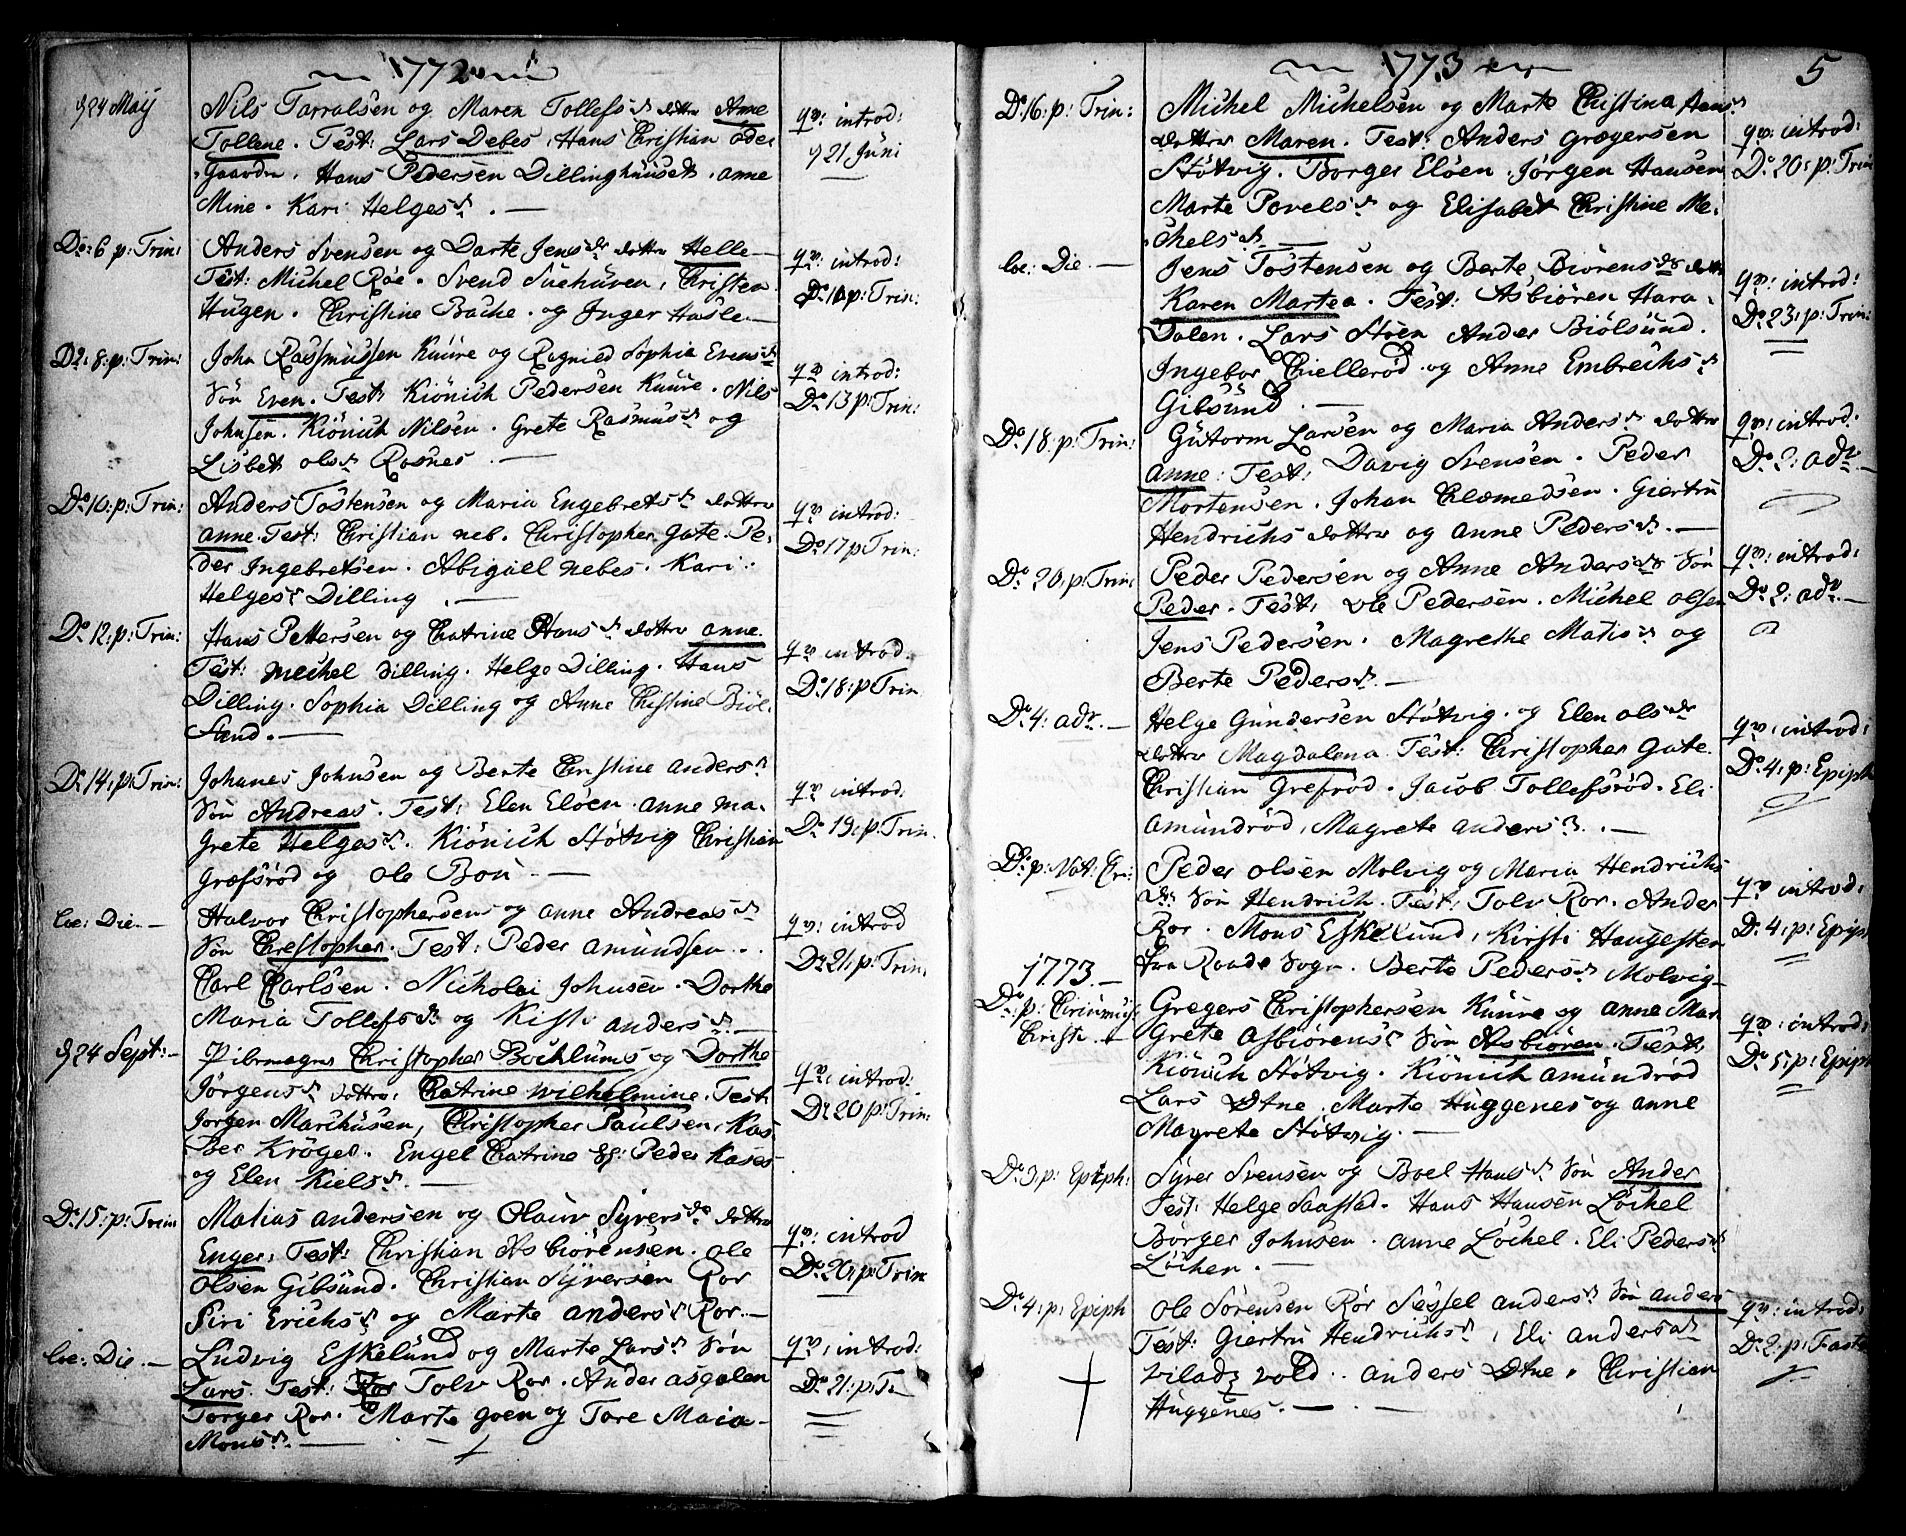 1772
d 24 Maij
Nils Tarralsen og Maren Tollefs dr dotter Anne
Tollene. Test: Lars Debes, Hans Christian öde
gaarden, Hans Pedersen Dillinghuuset, anne
Mine. Kari Helges dr. —
qv: introd:
d 21 Juni
Do: 6 p: Trin:
Anders Svensen og Dorte Jens dr dotter Helle —
Test: Michel Röe. Svend Suehuven, Christen
Hugen. Christine Bache. og Inger Hasle —
qv: introd:
Do 10 p: Trin:
Do: 8: p: Trin:
John Rasmussen Kuure og Ragnild Sophia Evens dr
Sön Even. Test: Kiönich Pedersen Kuure. Nils
Johnsen. Kiönich Nilsen. Grete Rasmus dr og
Lisbet ols dr Rosnes. —
qv introd:
Do 13 p: Trin:
Do 10: p: Trin:
Anders Tostensen og Maria Engebrets dr dotter
anne. Test: Christian neb. Christopher gate. Pe-
der Ingebretsen. Abigael nebes. Kari
Helges dr Dilling. —
qv introd:
Do 17 p Trin:
Do 12: p: Trin:
Hans Pettersen og Catrine Hans dr dotter anne.
Test: Mechel Dilling. Helge Dilling. Hans
Dilling. Sophia Dilling og Anne Christine Biöl-
Sund. —
qv introd:
Do 18: p Trin.
Do 14: p: Trin:
Johanes Johnsen og Berte Christine anders dr
Sön Andreas. Test: Elen Elöen. anne ma-
grete Helges dr. Kiönich Stötvig Christian
Græfsröd og ole Bou. —
qv introd:
Do 19: p: Trin.
loe: Die. —
Halvor Christophersen og anne Andreas dr
Sön Christopher. Test: Peder amundsen.
Carl Carlsen. Nicholai Johnsen. Dorthe
Maria Tollefs dr og Kisti anders dr. —
qv: introd
Do 21: p: Trin:
d 24 Sept: —
Christopher Bochlums og Dorthe
Jörgens dr dotter: Catrine wilhelmine. Test:
Jörgen Marchusen, Christopher Paulsen, Kas-
Ber Kröger. Engel Catrine Peder Kases
og Elen Kiels dr. —
qv: introd:
Do 20 p: Trin:
Do 15: p: Trin
Matias andersen og Olauv Syvers dr dotter
Enger. Test: Christian Asbiörensen. ole
olsen Gibsund. Christian Syversen Ror
Siri Erichs dr og Marte anders dr Ror. —
qv: introd
Do 20: p: Trin
loe: Die. —
Ludvig Eskelund og Marte Lars dr Sön
Lars. Test: Tolv Ror. Ander asgalen
Torger Ror. Marte goen og Tore Maia
Mons dr. —
qv: introd:
Do 21: p: Tr
1773
5
Do 16: p: Trin:
Michel Michelsen og Marte Christina Hans dr
dotter Maren. Test: Anders grægersen
Stötvig. Borger Elöen. Jörgen Hansen
Marte Povels dr og Elisabet Christine Me-
chels dr. —
qv: introd:
Do 20: p: Trin
loe: Die. —
Jens Tostensen og Berte Biörens dr dotter
Karen Martea. Test: Asbiören Hara-
dalen. Lars Stren Ander Biölsund.
Ingebor Kielleröd og Anne Embrechs dr
Gibsund. —
qv: introd:
Do 23: p: Trin:
Do 18: p: Trin:
Gutorm Larsen og Maria Anders dr dotter
anne: Test: Davig Svensen. Peder
Mortensen. Johan Clemedsen. Giertru
Hendrichs dotter og anne Peders dr. —
qv: introd:
Do 2: adv. —
Do 20: p: Trin:
Peder Pedersen og Anne Anders dr Sön
Peder. Test: ole Pedersen. Michel olsen
Jens Pedersen. Magrethe Matis dr og
Berte Peders dr. —
qv: introd:
Do 2: adv. —
Do 4: adv. —
Helge Gundersen Stötvig. og Elen ols dr
dotter Magdalena. Test: Christopher Gate.
Christian Grefröd. Jacob Tollefsröd. Eli
amundröd, Magrete anders dr. —
qv: introd:
Do 4: p: Epiph
Do: p: Nat: Cri:
Peder olsen Molvig og Maria Hendrichs
dr Sön Hendrich. Test: Tolv Ror. Ander
Ror. Mons Eskelund, Kirsti Haugesten
fra Raade Sogn. Berte Peders dr Molvig —
qv introd:
Do 4: p: Epiph
1773. —
Do: p: Circumcis:
Christi. —
Gregers Christophersen Kuure og anne Mar-
Grete asbiörens dr Sön Asbiören. Test:
Kiönich Stötvig. Kiönich amundröd
Lars Otne. Marte Huggenes og anne
Magrete Stötvig. —
qv: introd:
Do 5: p: Epiph
Do 3: p: Epiph:
Syver Svensen og Boel Hans dr Sön Ander
Test: Helge Saastad. Hans Hansen Löchel
Börger Johnsen. anne Löchel. Eli Peders dr
Löchen. —
Do 4: p: Epiph
ole Sörensen Rör Sessel anders dr Sön anders
Test: Giertru Hendrichs dr, Eli anders dr
vilads vold. anders Otne. Christian
Huggenes. —
qv: introd:
Do 2: p: Faste